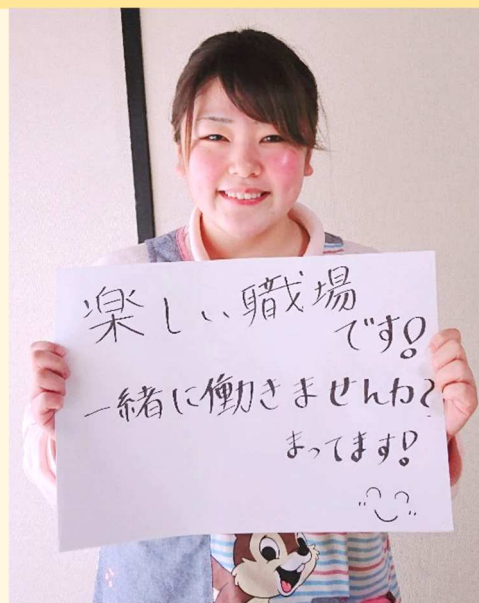 楽しい職場
です!
一緒に働きませんか?
まってます!